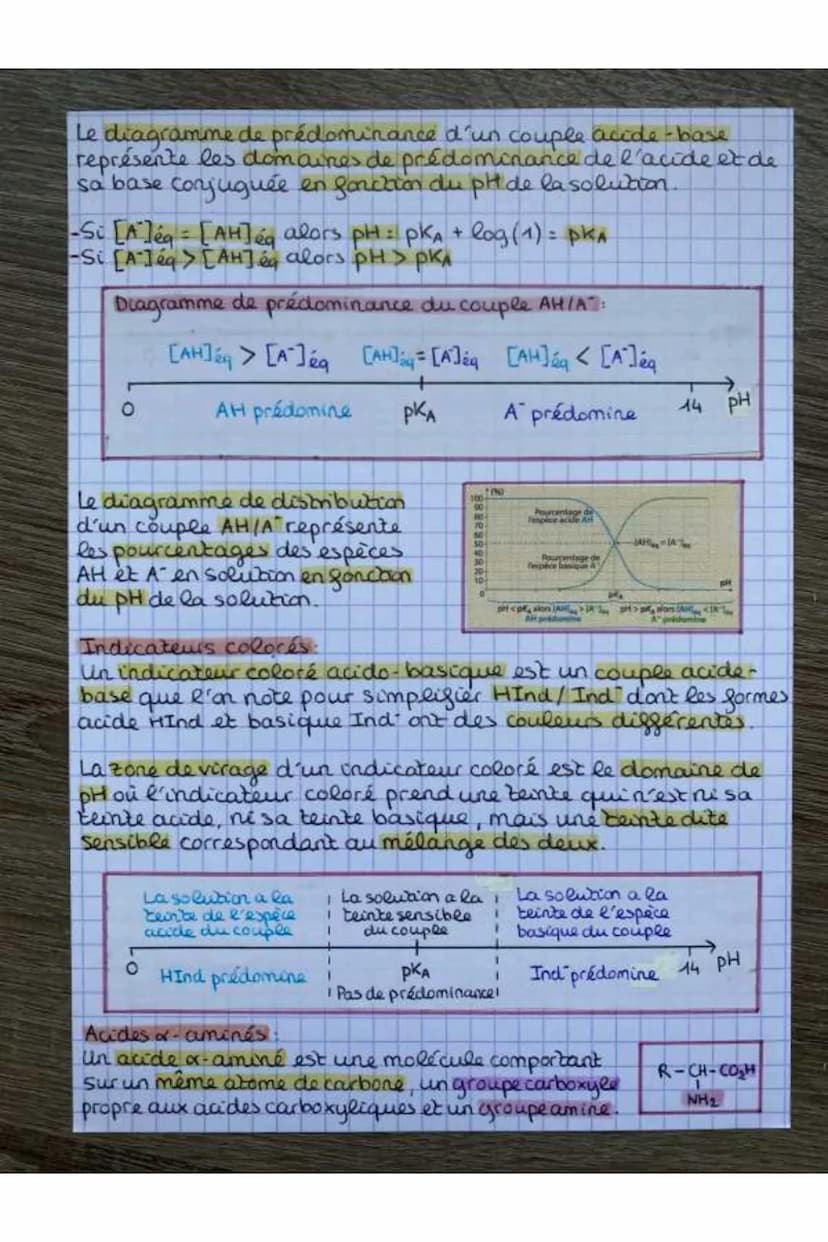 Le diagramme de prédominance d'un couple acide-base
représente les domaines de prédominance de l'acide et de
sa base conjuguée en fonction du pH de la solution.
-Si [A⁻]éq = [AH]éq alors pH = pKA + log(1) = pKA
-Si [A⁻]éq > [AH]éq alors pH > pKA
Diagramme de prédominance du couple AH/A⁻:
[AH]éq > [A⁻]éq [AH]éq = [A⁻]éq [AH]éq < [A⁻]éq
0 AH prédomine pKA A⁻ prédomine 14 pH
Le diagramme de distribution
d'un couple AH/A⁻ représente
les pourcentages des espèces
AH et A⁻ en solution en fonction
du pH de la solution.
(%)
100
90
80
70
60
50
40
30
20
10
0
Pourcentage de
l'espèce acide AH
[AH]éq = [A⁻]éq
Pourcentage de
l'espèce basique A⁻
pH
pKA
pH < pKA alors [AH]éq > [A⁻]éq pH > pKA alors [AH]éq < [A⁻]éq
AH prédomine A⁻ prédomine
Indicateurs colorés:
Un indicateur coloré acido-basique est un couple acide-
base que l'on note pour simplifier HInd/Ind⁻ dont les formes
acide HInd et basique Ind⁻ ont des couleurs différentes.
La zone de virage d'un indicateur coloré est le domaine de
pH où l'indicateur coloré prend une teinte qui n'est ni sa
teinte acide, ni sa teinte basique, mais une teinte dite
sensible correspondant au mélange des deux.
La solution a la
teinte de l'espèce
acide du couple
La solution a la
teinte sensible
du couple
La solution a la
teinte de l'espèce
basique du couple
0 HInd prédomine pKA Ind⁻ prédomine 14 pH
Pas de prédominance
Acides α-aminés:
Un acide α-aminé est une molécule comportant
sur un même atome de carbone, un groupe carboxyle
propre aux acides carboxyliques et un groupe amine.
R-CH-CO₂H
NH₂